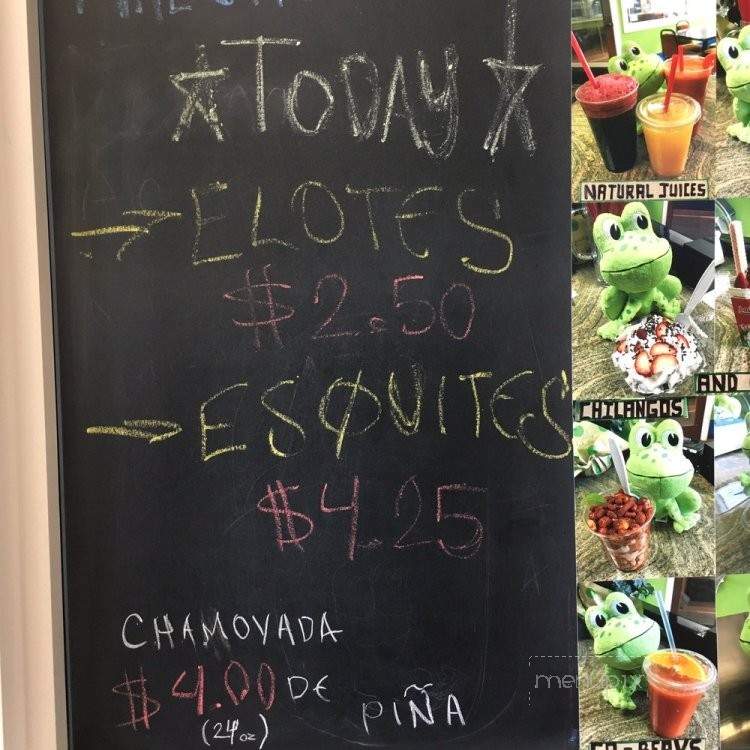 ★ TODAY ★
→ ELOTES
$2.50
→ ESQUITES
$4.25
CHAMOYADA
$4.00 DE PIÑA
(24oz)
NATURAL JUICES
CHILANGOS
AND
menupix